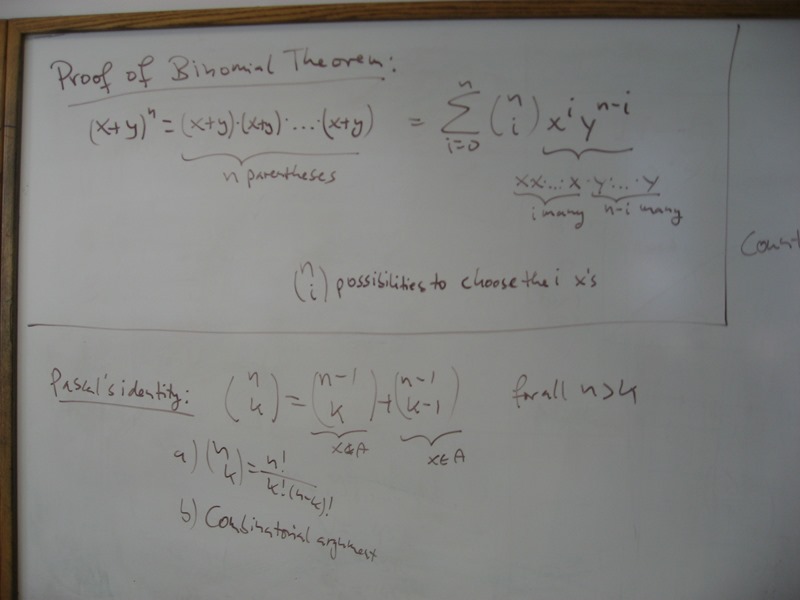 Proof of Binomial Theorem:
(x+y)^n = (x+y)·(x+y)·...·(x+y) = ∑_{i=0}^{n} (n i) x^i y^{n-i}
n parentheses
xx·...·x·y·...·y
i many n-i many
(n i) possibilities to choose the i x's
Paskal's identity: (n k) = (n-1 k) + (n-1 k-1) for all n>k
x∉A x∈A
a) (n k) = n! / k!(n-k)!
b) Combinatorial argument